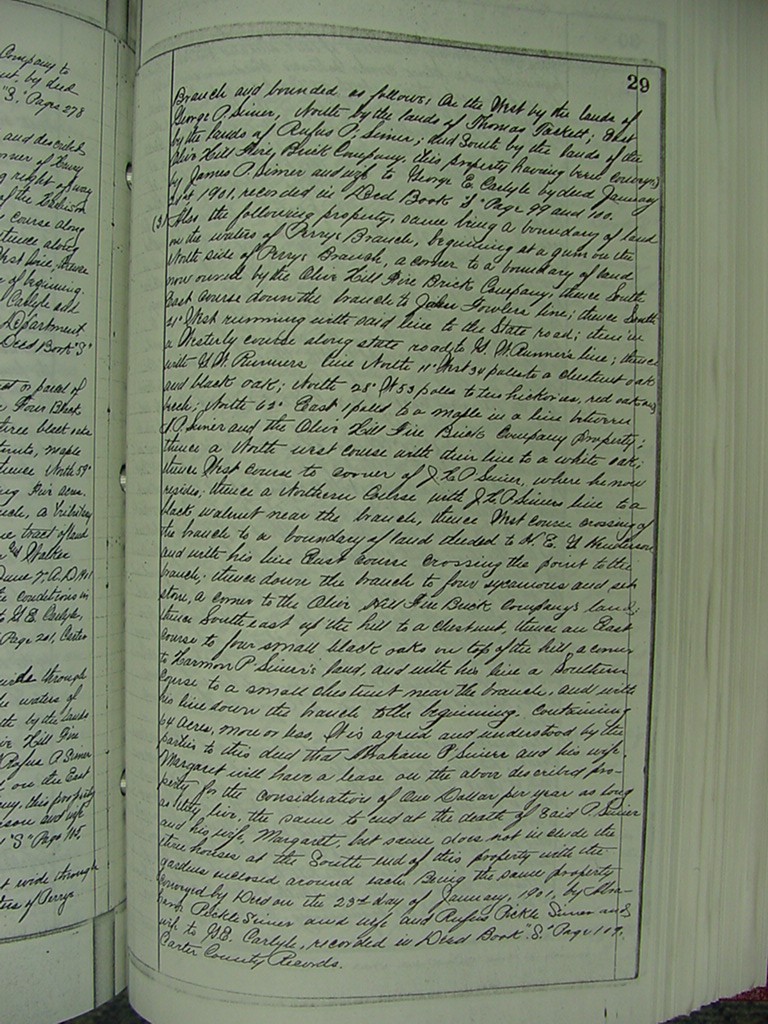 Company to
by deed
"S." Page 278
and describ
corner of Harry
right of way
of the
course along
thence along
West line, thence
of beginning.
Carlyle and
Department
Deed Book "S"
or parcel of
Four Black
three black oaks
maple
thence North 59°
five acres.
a tributary
tract of land
Walker
June
the conditions in
to G.E. Carlyle,
Page 201, Carter
wide through
the waters of
by the lands
Hill Fire
Rufus P. Siner
on the East
this property
and wife
"S" Page 115.
wide through
waters of Perrys
29
Branch and bounded as follows: On the West by the lands of
George P. Siner, North by the lands of Thomas Tackett; East
by the lands of Rufus P. Siner; and South by the lands of the
Olive Hill Fire Brick Company, this property having been conveyed
by James P. Siner and wife to George E. Carlyle by deed January
21st 1901, recorded in Deed Book "S" Page 99 and 100.
(3) Also the following property, same being a boundary of land
on the waters of Perrys Branch, beginning at a gum on the
North side of Perrys Branch, a corner to a boundary of land
now owned by the Olive Hill Fire Brick Company, thence South
East course down the branch to John Fowlers line; thence South
21° West running with said line to the State road; thence in
a Westerly course along state road, to G. W. Runner's line; thence
with G. W. Runners line North 11° West 34 poles to a chestnut oak
and black oak; North 28° W 53 poles to two hickories, red oak and
beech; North 62° East 1 poles to a maple in a line between
P. Siner and the Olive Hill Fire Brick Company property;
thence a North west course with their line to a white oak;
thence West course to corner of J.L.P. Siner, where he now
resides; thence a Northern Course with J.L.P. Siners line to a
black walnut near the branch, thence West course crossing of
the branch to a boundary of land deeded to W. E. G. Henderson
and with his line East course crossing the point to the
branch; thence down the branch to four sycamores and set
stone, a corner to the Olive Hill Fire Brick Company's land;
thence South east up the hill to a chestnut, thence an East
course to four small black oaks on top of the hill, a corner
to Harmon P. Siner's land, and with his line a Southern
course to a small chestnut near the branch, and with
his line down the branch to the beginning. Containing
64 acres, more or less. It is agreed and understood by the
parties to this deed that Abraham P. Siner and his wife
Margaret will have a lease on the above described pro-
perty for the consideration of One Dollar per year as long
as they live, the same to end at the death of said P. Siner
and his wife, Margaret, but same does not include the
three houses at the South end of this property with the
gardens inclosed around each. Being the same property
conveyed by Deed on the 23rd day of January, 1901, by Abra-
ham Pickle Siner and wife and Rufus Pickle Siner and
wife to G.E. Carlyle, recorded in Deed Book "S." Page 117.
Carter County Records.